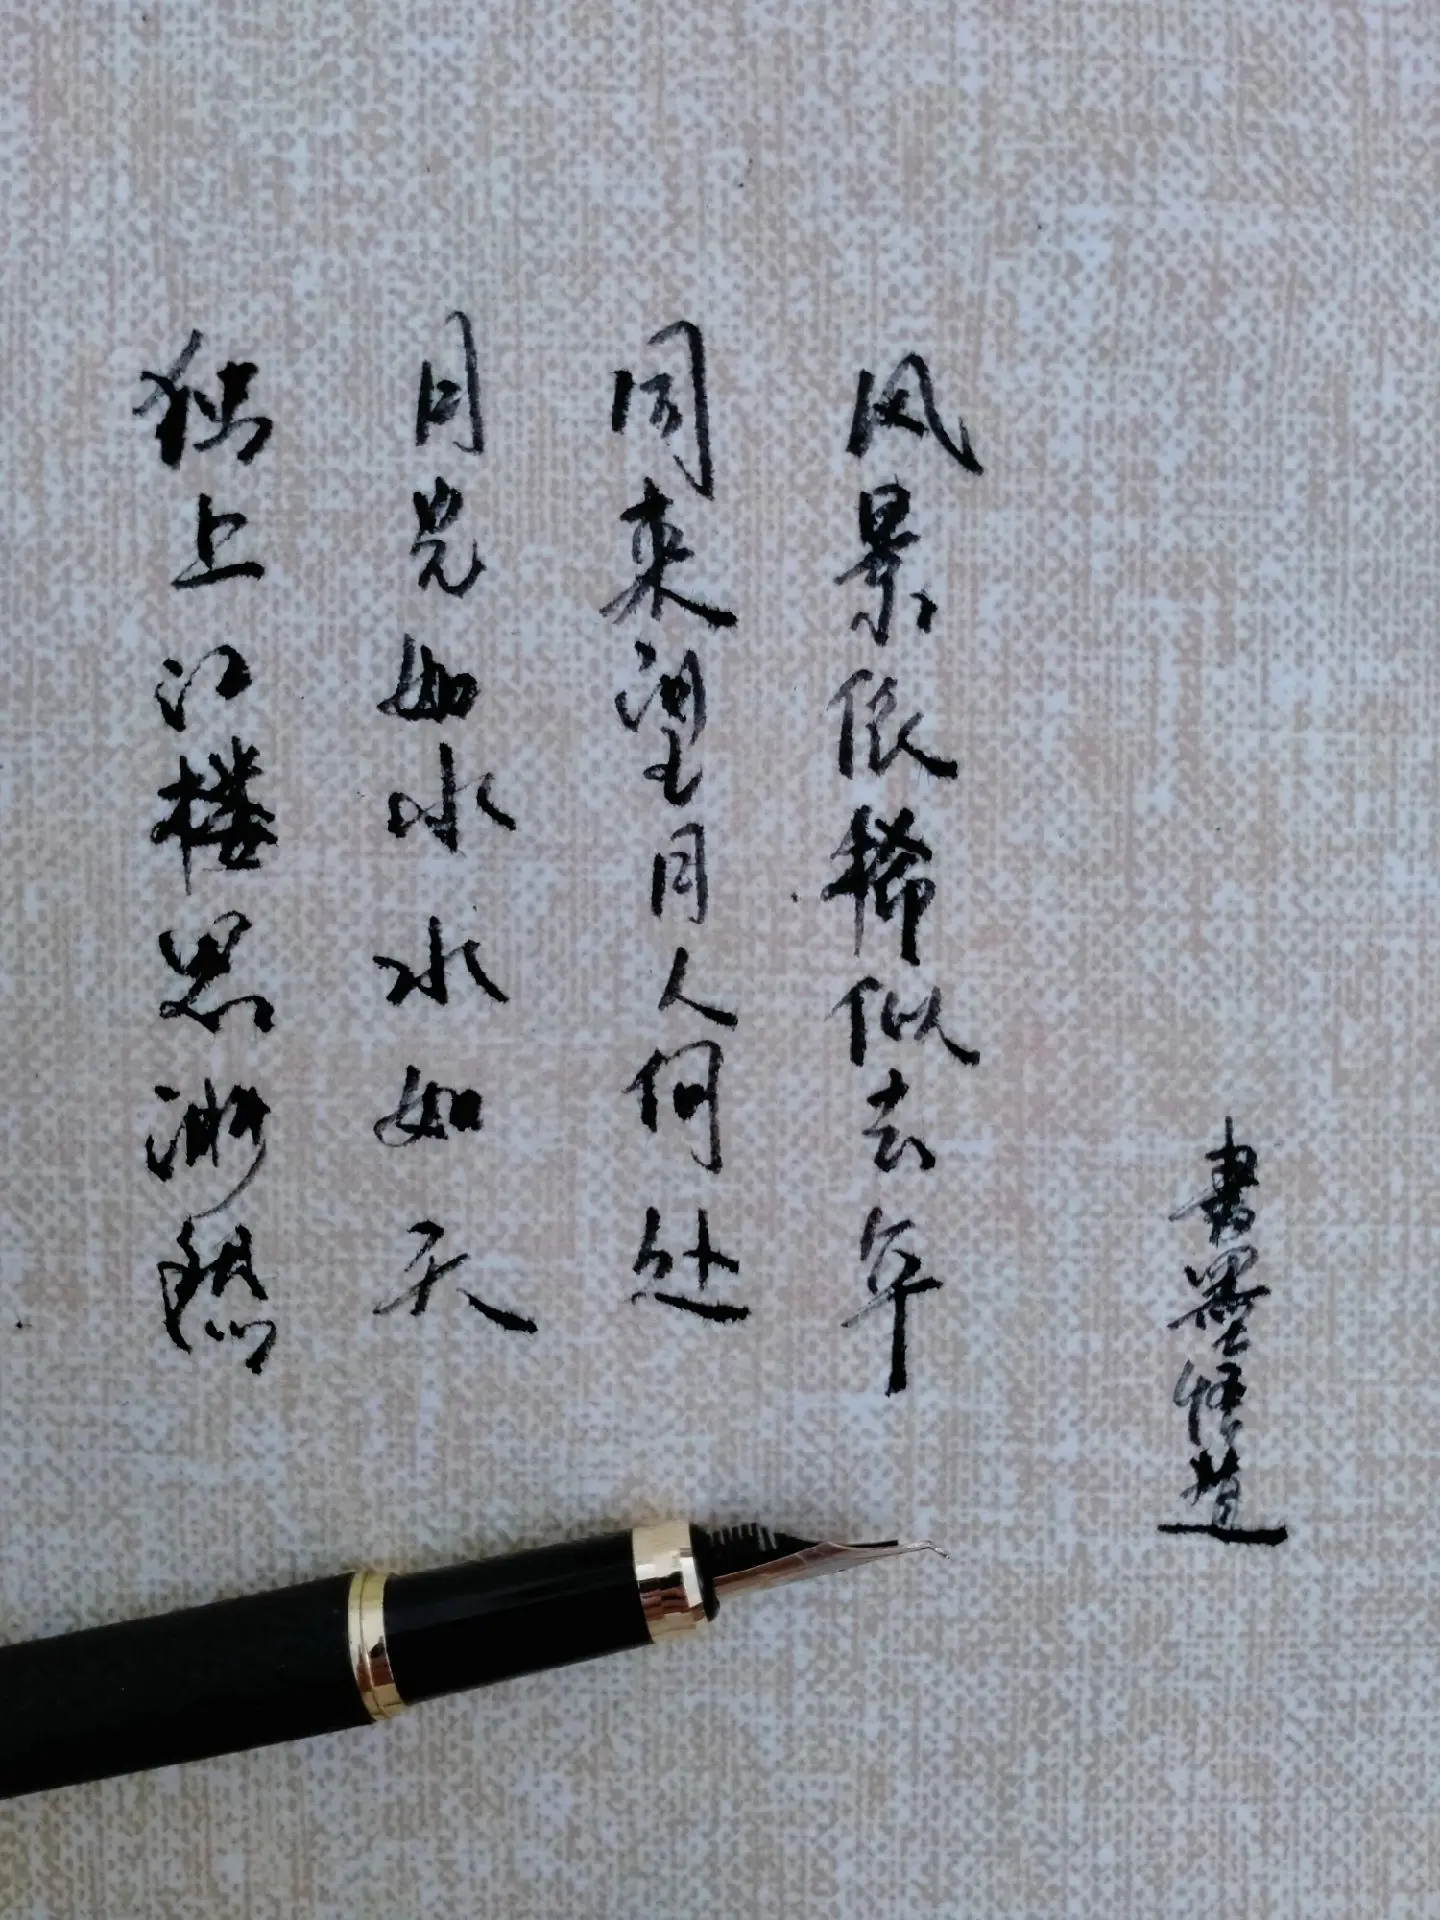 独上江楼思渺然
月光如水水如天
同来望月人何处
风景依稀似去年
書墨悟道